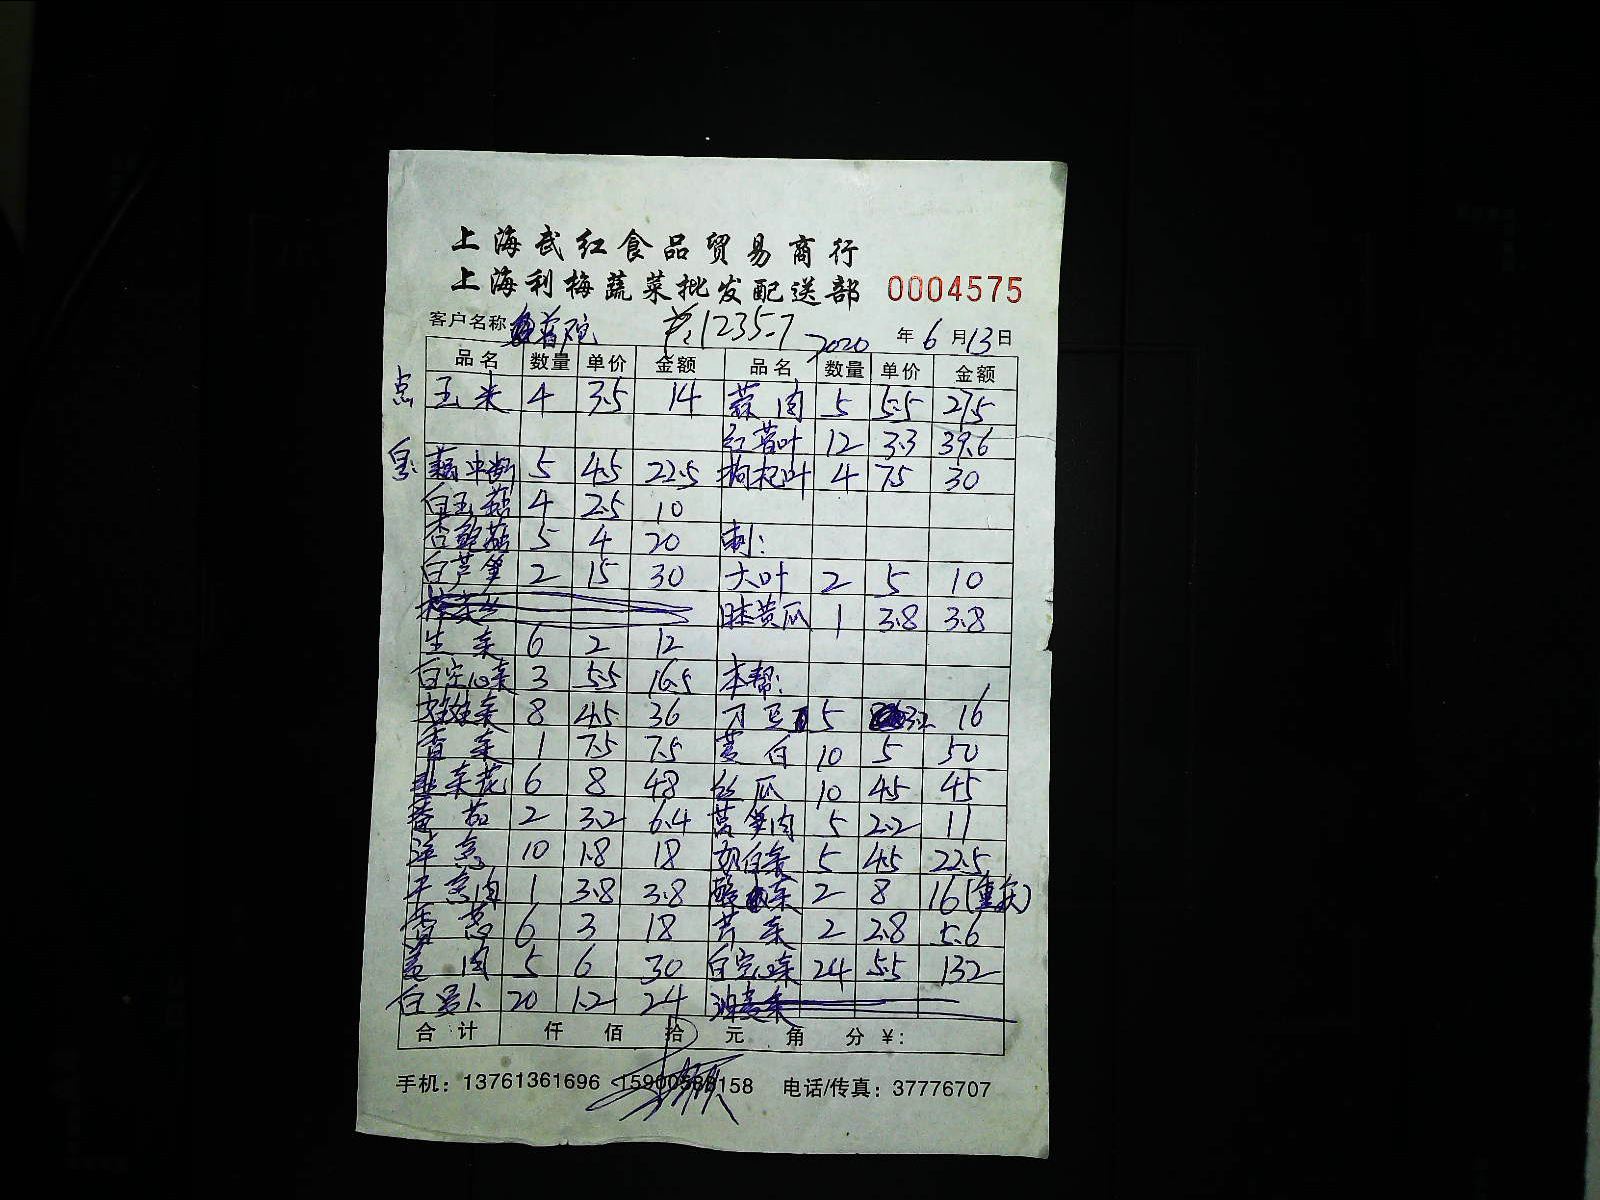 上海武红食品贸易商行
上海利梅蔬菜批发配送部 0004575
客户名称 1235.7 2020 年 6 月 13 日
品名 数量 单价 金额 品名 数量 单价 金额
点 玉米 4 3.5 14 蒜肉 5 5.5 27.5
红苕叶 12 3.3 39.6
藕中断 5 4.5 22.5 枸杞叶 4 7.5 30
白玉菇 4 2.5 10
杏鲍菇 5 4 20 刺:
白芦笋 2 15 30 大叶 2 5 10
黄瓜 1 3.8 3.8
生菜 6 2 12
白空心菜 3 5.5 16.5 本帮:
娃娃菜 8 4.5 36 刀豆 5 3.2 16
香菜 1 7.5 7.5 茭白 10 5 50
韭菜花 6 8 48 丝瓜 10 4.5 45
番茄 2 3.2 6.4 莴笋肉 5 2.2 11
洋葱 10 1.8 18 白菜 5 4.5 22.5
干葱肉 1 3.8 3.8 酸菜 2 8 16(重庆)
香葱 6 3 18 芹菜 2 2.8 5.6
姜肉 5 6 30 白空心菜 24 5.5 132
白萝卜 20 1.2 24 油麦菜
合计 仟 佰 拾 元 角 分 ¥:
手机: 13761361696 15900588158 电话/传真: 37776707